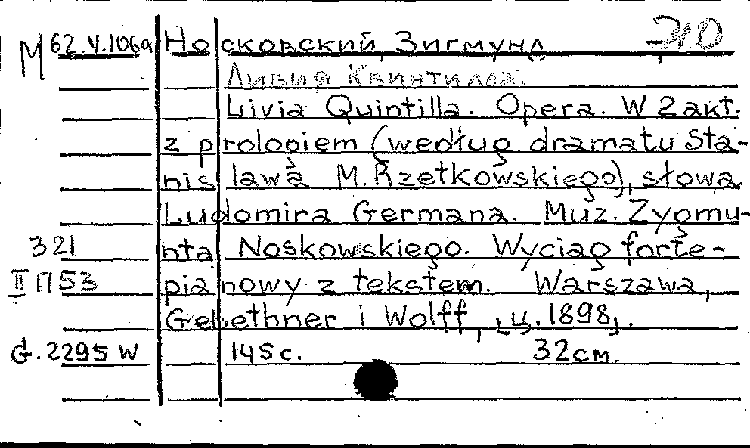 М 62.V.106a Носковский, Зигмунд
Ливия Квинтилла.
Livia Quintilla. Opera. W 2 akt.
z prologiem (według dramatu Sta-
nisława M. Rzetkowskiego), słowa
Ludomira Germana. Muz. Zygmu-
321 nta Noskowskiego. Wyciąg forte-
II П 53 pianowy z tekstem. Warszawa,
Gebethner i Wolff, [ц. 1898].
G.2295 W 145 с. 32 см.